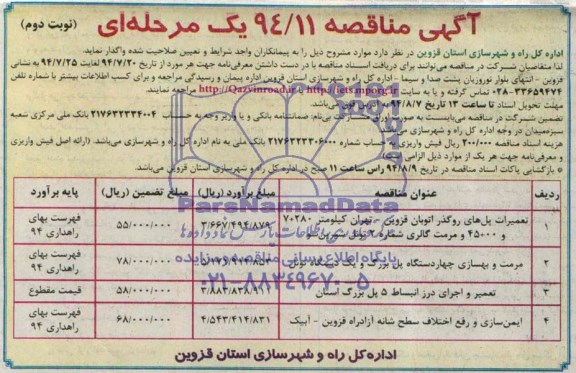 آگهی مناقصه ۹۴/۱۱ یک مرحله‌ای (نوبت دوم)
اداره کل راه و شهرسازی استان قزوین در نظر دارد موارد مشروح ذیل را به پیمانکاران واجد شرایط و تعیین صلاحیت شده واگذار نماید.
لذا متقاضیان شرکت در مناقصه می‌توانند برای دریافت اسناد مناقصه با در دست داشتن معرفی‌نامه جهت هر مورد از تاریخ ۹۴/۷/۲۰ لغایت ۹۴/۷/۲۵ به نشانی
قزوین - انتهای بلوار نوروزیان پشت صدا و سیما - اداره کل راه و شهرسازی استان قزوین اداره پیمان و رسیدگی مراجعه و برای کسب اطلاعات بیشتر با شماره تلفن
۰۲۸-۳۳۶۵۹۴۷۴ تماس گرفته و یا به سایت http://iets.mporg.ir http://Qazvinroad.ir مراجعه نمایند.
مهلت تحویل اسناد تا ساعت ۱۳ تاریخ ۹۴/۸/۷ به آدرس فوق می‌باشد.
تضمین شرکت در مناقصه می‌بایست به صورت اوراق مشارکت بی‌نام، ضمانتنامه بانکی و یا واریز وجه به حساب ۲۱۷۶۳۲۳۳۴۰۰۴ بانک ملی مرکزی شعبه
سبزه‌میدان در وجه اداره کل راه و شهرسازی می‌باشد.
هزینه اسناد مناقصه ۲۰۰/۰۰۰ ریال فیش واریزی به حساب شماره ۲۱۷۶۳۲۳۳۰۶۰۰۰ بانک ملی به نام اداره کل راه و شهرسازی می‌باشد. (ارائه اصل فیش واریزی
و معرفی‌نامه جهت هر یک از موارد ذیل الزامی است)
* بازگشایی پاکات اسناد مناقصه در تاریخ ۹۴/۸/۹ راس ساعت ۱۱ صبح در اداره کل راه و شهرسازی استان قزوین می‌باشد.
ردیف عنوان مناقصه مبلغ برآورد (ریال) مبلغ تضمین (ریال) پایه برآورد
۱ تعمیرات پل‌های روگذر اتوبان قزوین - تهران کیلومتر ۷۰۲۸۰ و ۴۵۰۰۰ و مرمت گالری شماره ۲ ۳/۶۶۷/۴۹۴/۸۷۹ ۵۵/۰۰۰/۰۰۰ فهرست بهای راهداری ۹۴
۲ مرمت و بهسازی چهاردستگاه پل بزرگ و یک دستگاه ۷۸/۰۰۰/۰۰۰ فهرست بهای راهداری ۹۴
۳ تعمیر و اجرای درز انبساط ۵ پل بزرگ استان ۳/۸۸۳/۸۳۸/۹۱۱ ۵۸/۰۰۰/۰۰۰ قیمت مقطوع
۴ ایمن‌سازی و رفع اختلاف سطح شانه آزادراه قزوین - آبیک ۴/۵۴۳/۴۱۴/۸۳۱ ۶۸/۰۰۰/۰۰۰ فهرست بهای راهداری ۹۴
ParsNamadData
پایگاه اطلاع رسانی مناقصه و مزایده
۰۲۱-۸۸۳۴۹۶۷۰-۵
اداره کل راه و شهرسازی استان قزوین